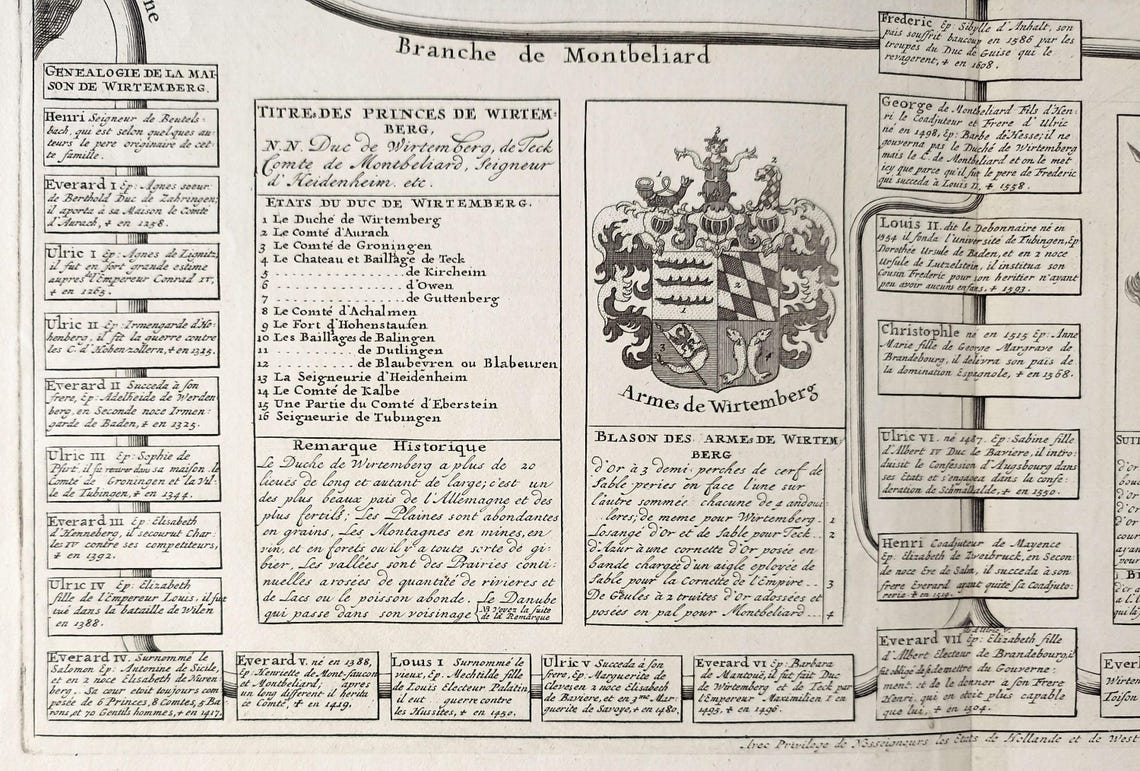 ne
Branche de Montbeliard
GENEALOGIE DE LA MAI-
SON DE WIRTEMBERG.
Henri Seigneur de Beutels-
bach, qui est selon quelques au-
teurs le pere originaire de cet-
te famille.
Everard I Ep: Agnes soeur
de Berthold Duc de Zahringen;
il aporta à sa Maison le Comté
d'Aurach, + en 1258.
Ulric I Ep: Agnes de Lignitz,
il fut en fort grande estime
aupres l'Empereur Conrad IV,
+ en 1265.
Ulric II Ep: Irmengarde d'Ho-
henberg, il fit la guerre contre
les C. d'Hohenzollern, + en 1325.
Everard II Succeda à son
frere, Ep: Adelheide de Werden
berg, en Seconde noce Irmen-
garde de Baden, + en 1325.
Ulric III Ep: Sophie de
Pfirt, il fit dans sa maison le
Comté de Groningen et la Vil-
le de Tubingen, + en 1344.
Everard III Ep: Elisabeth
d'Henneberg, il secourut Char-
les IV contre ses competiteurs,
+ en 1392.
Ulric IV Ep: Elizabeth
fille de l'Empereur Louis, il fut
tué dans la bataille de Wilen
en 1388.
Everard IV. Surnommé le
Salomon Ep: Antonine de Sicile,
et en 2 noce Elisabeth de Nuren-
berg. Sa cour etoit toujours com
posée de 6 Princes, 8 Comtes, 5 Ba-
rons, et 70 Gentils hommes, + en 1417.
Everard V. né en 1388,
Ep: Henriette de Mont-faucon
et Montbeliard, apres
un long different il herita
ce Comté, + en 1419.
Louis I Surnommé le
vieux, Ep. Mechtilde fille
de Louis Electeur Palatin,
il eut guerre contre
les Hussites, + en 1450.
Ulric V Succeda à son
frere, Ep. Marguerite de
Cleves en 2 noce Elisabeth
de Baviere, et en 3me. Mar-
guerite de Savoye, + en 1480.
Everard VI Ep: Barbara
de Mantoüe, il fut fait Duc
de Wirtemberg et de Teck par
l'Empereur Maximilien I en
1495, + en 1496.
TITRE DES PRINCES DE WIRTEM-
BERG,
N.N. Duc de Wirtemberg, de Teck
Comte de Montbeliard, Seigneur
d'Heidenheim, etc.
ETATS DU DUC DE WIRTEMBERG.
1 Le Duché de Wirtemberg
2 Le Comté d'Aurach
3 Le Comté de Groningen
4 Le Chateau et Baillage de Teck
5 .................. de Kircheim
6 .................. d'Owen
7 .................. de Guttenberg
8 Le Comté d'Achalmen
9 Le Fort d'Hohenstaufen
10 Les Baillages de Balingen
11 ............ de Dutlingen
12 ............ de Blaubevren ou Blabeuren
13 La Seigneurie d'Heidenheim
14 Le Comté de Kalbe
15 Une Partie du Comté d'Eberstein
16 Seigneurie de Tubingen
Remarque Historique
Le Duché de Wirtemberg a plus de 20
lieües de long et autant de large; c'est un
des plus beaux pais de l'Allemagne et des
plus fertils; Les Plaines sont abondantes
en grains, Les Montagnes en mines, en
vin, et en forets ou il y a toute sorte de gi-
bier, Les vallées sont des Prairies conti-
nuelles arosées de quantité de rivieres et
de Lacs ou le poisson abonde. Le Danube
qui passe dans son voisinage
Voyez la suite
de la Remarque
2
1
2
1
3
4
Armes de Wirtemberg
BLASON DES ARMES DE WIRTEM-
BERG
d'Or à 3 demi-perches de cerf de
Sable periés en face l'une sur
l'autre sommée chacune de 4 andoui-
leres, de meme pour Wirtemberg . 1
Losangé d'Or et de Sable pour Teck . . 2
d'Azur à une cornette d'Or posée en
bande chargée d'un aigle eployée de
Sable pour la Cornette de l'Empire . . 3
De Geules à 2 truites d'Or adossées et
posées en pal pour Montbeliard . . . 4
Frederic Ep: Sibylle d'Anhalt, son
pais souffrit baucoup en 1586 par les
troupes du Duc de Guise qui le
ravagerent, + en 1608.
George de Montbeliard Fils d'Hen-
ri le Coadjuteur et Frere d'Ulric
né en 1498, Ep: Barbe de Hesse; il ne
gouverna pas le Duché de Wirtemberg
mais le C. de Montbeliard et on le met
icy que parce qu'il fut le pere de Frederic
qui succeda à Louis II, + 1558.
Louis II. dit le Debonnaire né en
1554 il fonda l'université de Tubingen, Ep
Dorothée Ursule de Baden, et en 2 noce
Ursule de Lutzelstein, il institua son
Cousin Frederic pour son heritier n'ayant
peu avoir aucuns enfans. + 1593.
Christophle né en 1515 Ep: Anne
Marie fille de George Margrave de
Brandebourg, il delivra son pais de
la domination Espagnole, + en 1568.
Ulric VI. né 1487. Ep: Sabine fille
d'Albert IV Duc de Baviere, il intro-
duisit le Confession d'Augsbourg dans
ses Etats et s'engagea dans la confe-
deration de Schmalkalde, + en 1550.
Henri Coadjuteur de Mayence
Ep. Elizabeth de Zweibruck, en Secon-
de noce Eve de Salm, il succeda à son
frere Everard ayant quité sa Coadjuto-
rerie + en 1519.
Everard VII Ep: Elizabeth fille
d'Albert Electeur de Brandebourg, il
fut obligé de se demettre du Gouverne-
ment et de le donner à son Frere
Henri, qui en etoit plus capable
que lui, + en 1504.
Everl
Wirten
Toison
Avec Privilege de Nosseigneurs les Etats de Hollande et de West